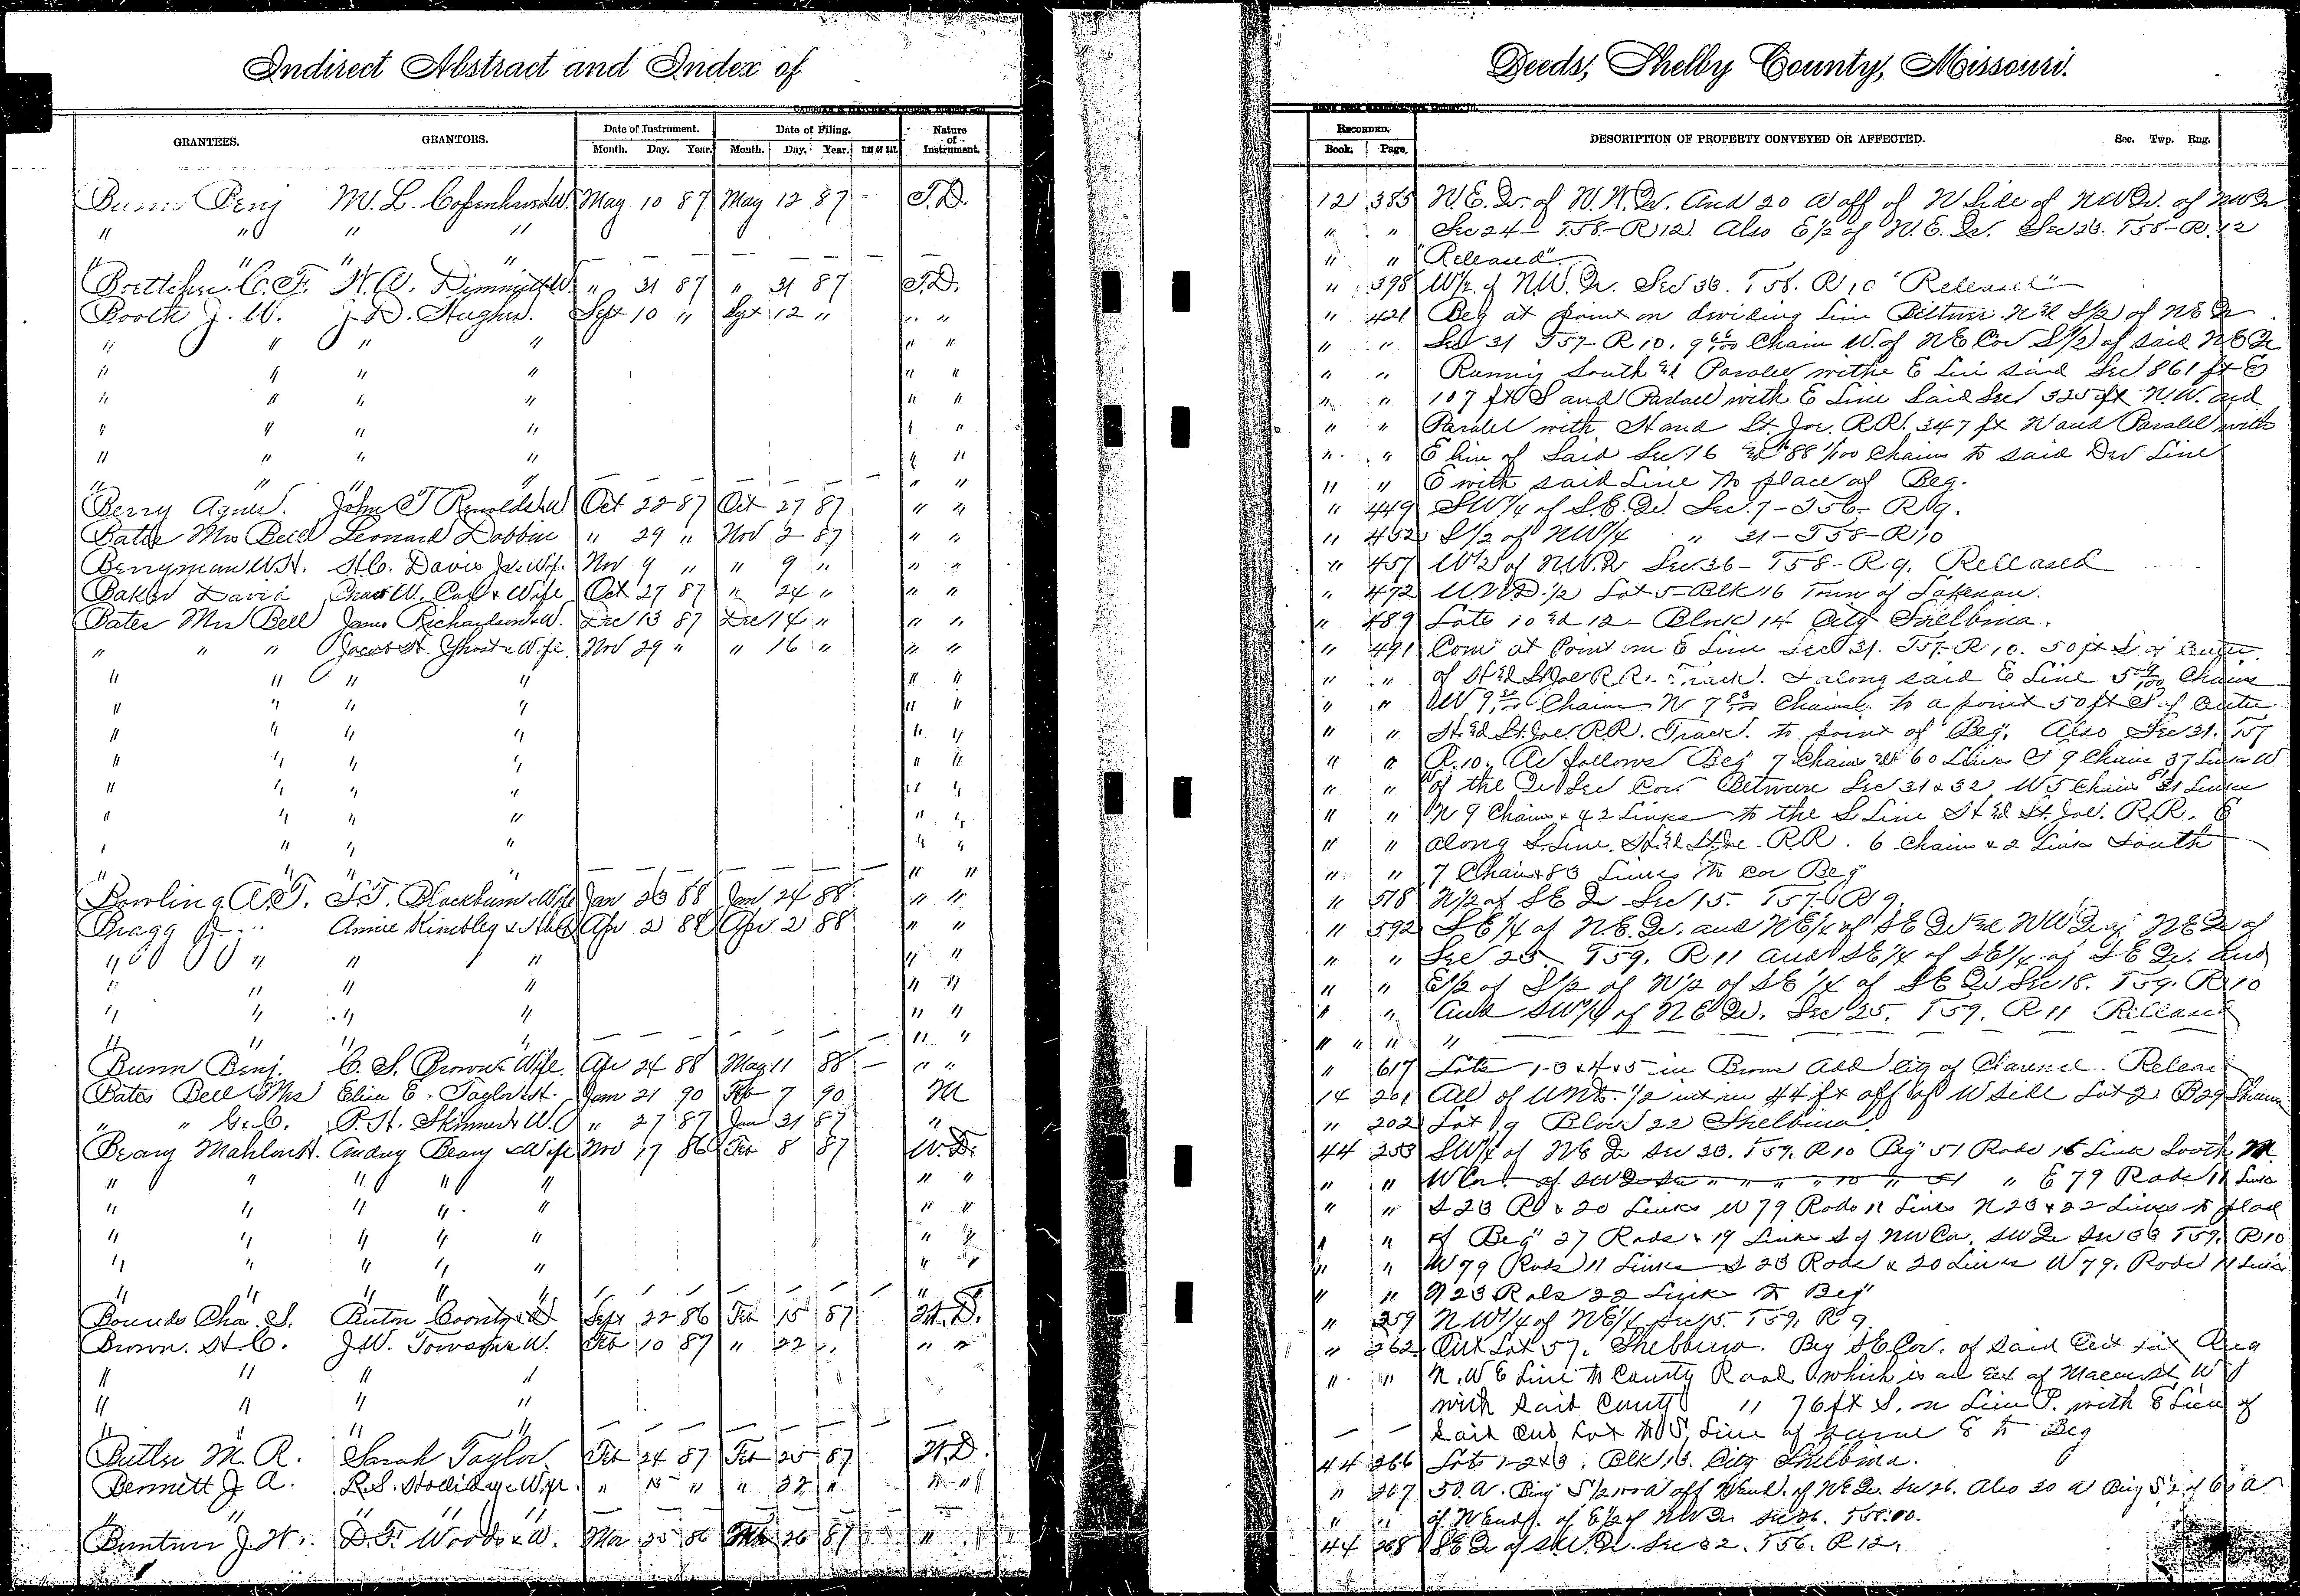 Indirect Abstract and Index of Deeds, Shelby County, Missouri.
GRANTEES. GRANTORS. Date of Instrument. Date of Filing. Nature of Instrument. RECORDED. DESCRIPTION OF PROPERTY CONVEYED OR AFFECTED. Sec. Twp. Rng.
Month. Day. Year. Month. Day. Year. TIME OF DAY. Book. Page.
Benj M. L. May 10 87 May 12 87 T.D. 12 385 N.E. Qr. of N.W. Qr. And 20 a off of N Side of NW Qr. of NW Qr
" " " " " " Sec 24 - T58 - R12 Also E 1/2 of N.E. Qr. Sec 23. T58 - R.12
" " " " " " "Released"
C. F. W. A. Dimmitt &W. " 31 87 " 31 87 T.D. " 398 W 1/2 of N.W. Qr. Sec 36. T58. R10 "Released"
Booth J. W. J. D. Hughes. Sept 10 " Sept 12 " " " " 421 Beg at point on dividing line Between N & S 1/2 of NE Qr
" " " " " " " " Sec 31 T57 - R10. 9 Chain W. of NE Cor S 1/2 of said NE Qr
" " " " " " " " Running South & Paralel withe E Line said Sec 861 ft E
" " " " " " " " 107 ft S and Paralel with E Line Said Sec 325 ft N.W. and
" " " " " " " " Paralel with H and St. Joe. R.R. 347 ft N and Paralel with
" " " " " " " " E line of Said Sec 16 & 88 1/100 Chains to said Div Line
" " " " " " " " E with said Line to place of Beg.
Berry Agnes. John T Reynolds &W Oct 22 87 Oct 27 87 " " " 449 SW 1/4 of S.E. Qr. Sec. 7 - T56 - R9.
Bates Mrs Bell Leonard Dobbin " 29 " Nov 2 87 " " " 452 S 1/2 of NW 1/4 " 31 - T58 - R10
Berryman W.H. H.C. Davis Jr & Wife. Nov 9 " " 9 " " " " 457 W 1/2 of NW. Qr Sec 36 - T58 - R9. Released
Baker David Chas W. & Wife Oct 27 87 " 24 " " " " 472 UND 1/2 Lot 5 - Blk 16 Town of Lakenan.
Bates Mrs Bell James Richardson &W. Dec 13 87 Dec 14 " " " " 489 Lots 10 & 12 - Block 14 City Shelbina.
" " " Jacob H. & Wife Nov 29 " " 16 " " " " 491 Com at Point on E Line Sec 31. T57 - R10. 50 ft S of Center.
" " " " " " " " of H & St Joe R.R. Track. S along said E Line 5 Chains
" " " " " " " " W 9 Chains N 7 83/100 Chains to a point 50 ft S. of Center
" " " " " " " " H. & St. Joe. R.R. Track. to point of Beg. Also Sec 31. T57
" " " " " " " " R.10. As follows Beg 7 Chains & 60 Links S 9 Chains 37 Links W
" " " " " " " " of the Qr Sec Cor Between Sec 31 & 32 W 5 Chains 81 Links
" " " " " " " " N 9 Chains & 42 Links to the S Line H & St. Joe. R.R. E
" " " " " " " " along S. Line. H. & St. Joe. R.R. 6 chains & 2 Links South
" " " " " " " " 7 Chains & 83 Links to cor Beg
Bowling A.T. S.T. Blackburn & Wife Jan 23 88 Jan 24 88 " " " 518 N 1/2 of SE Qr Sec 15. T57 - R9.
Bragg Annie Kimbley & Apr 2 88 Apr. 2 88 " " " 592 SE 1/4 of N.E. Qr. and NE 1/4 of SE Qr & NW Qr of NE Qr of
" " " " " " " " Sec 25 - T59. R11 and SE 1/4 of SE 1/4 of SE Qr. And
" " " " " " " " E 1/2 of S 1/2 of N 1/2 of SE 1/4 of SE Qr Sec 18. T59. R10
" " " " " " " " And SW 1/4 of NE Qr. Sec 25. T59. R11 Released
" " " " " " " " "
Bunn Benj. C. S. Brown & Wife. Apr 24 88 May 11 88 " " " 617 Lots 1-3 & 4 & 5 in Add City of Clarence. Released
Bates Bell Mrs Eliza E. Taylor &H. Jan 21 90 Feb 7 90 M 14 201 All of UND. 1/2 int in 44 ft off of W side Lot 2 B29
" " G.C. P. H. Skinner & W. " 27 87 Jan 31 87 " " 202 Lot 9 Block 22 Shelbina
Beary Mahlon H. Andrey Beary & Wife Nov 17 86 Feb 8 87 W.D. 44 253 SW 1/4 of NE Qr Sec 33. T59. R10 Beg 51 Rods 16 Link South N.
" " " " " " " " " W Cor. of SW Qr Sec " " " " 10 " 51 " E 79 Rods 11 Links
" " " " " " " " " S 23 R & 20 Links W 79 Rods 11 Links N 23 & 22 Links to place
" " " " " " " " " of Beg" 27 Rods & 19 Links S of NW Cor. SW Qr Sec 33 T59. R10
" " " " " " " " " W 79 Rods 11 Links S 23 Rods & 20 Links W 79. Rods 11 Links
" " " " " " " " N 23 Rods 22 Links to Beg"
Bounds Chas. S. & W Sept 22 86 Feb 15 87 W.D. " 259 N W 1/4 of NE 1/4 Sec 15. T59. R9
Brown. H. C. J.W. Towson & W. Feb 10 87 " 22 " " " " 262 Out Lot 57. Shelbina. Beg SE Cor. of Said Out Lot
" " " " " " N. W E Line to County Road which is an Ext of W
" " " " with said County " 76 ft S. on Line P. with E Line of
" " said Out Lot to S. Line of same E to Beg
Butler M. R. Sarah Taylor Feb 24 87 Feb 25 87 W.D. 44 266 Lots 1-2&3. Blk 13. City Shelbina.
Bennett J A. R.S. Holliday & Wife. " 15 " " 22 " " " " 267 50. A. Being S 1/2 100 a off N End. of NE Qr. Sec 26. Also 30 a Being S 1/2 of 60 A
" " " " " " of N End. of E 1/2 of NW Qr Sec 26. T58.
J. W. D. F. Woods & W. Mar 25 86 26 87 " 44 268 SE Qr of S.W. Qr. Sec 32. T56. R12.